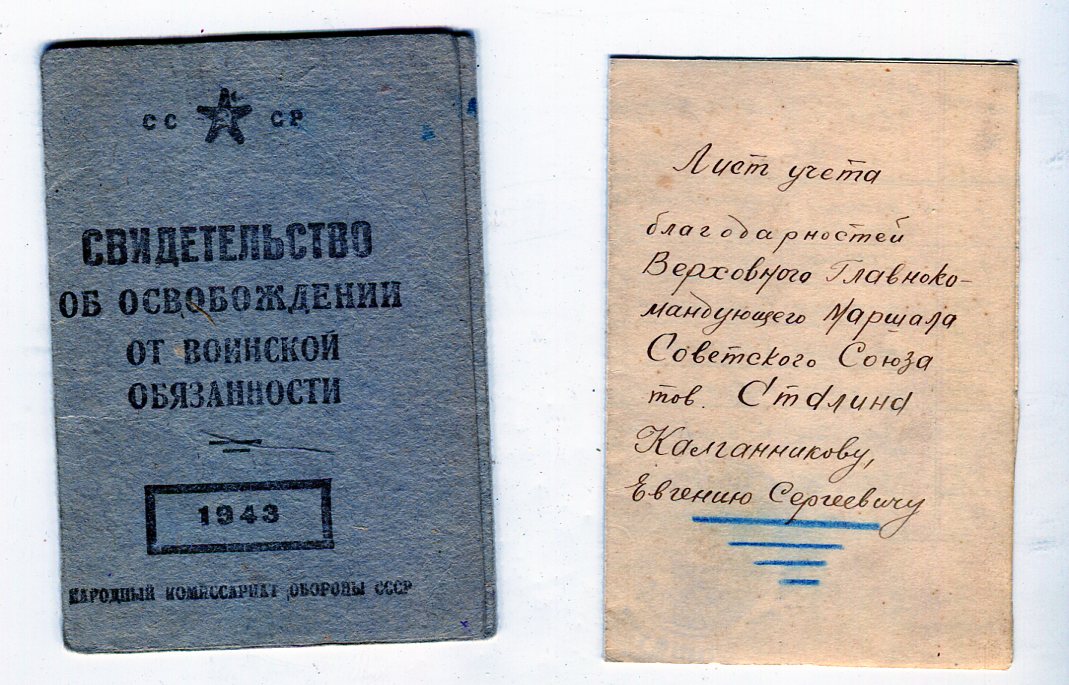 СС СР
СВИДЕТЕЛЬСТВО
ОБ ОСВОБОЖДЕНИИ
ОТ ВОИНСКОЙ
ОБЯЗАННОСТИ
1943
НАРОДНЫЙ КОМИССАРИАТ ОБОРОНЫ СССР
Лист учета
благодарностей
Верховного Главноко-
мандующего Маршала
Советского Союза
тов. Сталина
Калганникову,
Евгению Сергеевичу